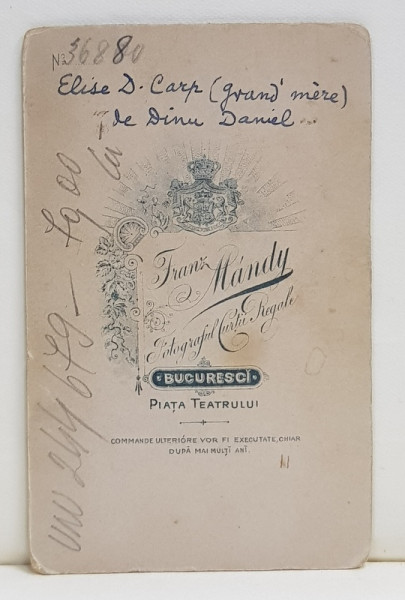 No 36880
Elise D. Carp (grand' mère)
de Dinu Daniel
Franz Mándy
Fotograful Curtii Regale
BUCURESCI
PIAȚA TEATRULUI
COMMANDE ULTERIÓRE VOR FI EXECUTATE, CHIAR
DUPĂ MAI MULȚI ANI.
79 00
lei